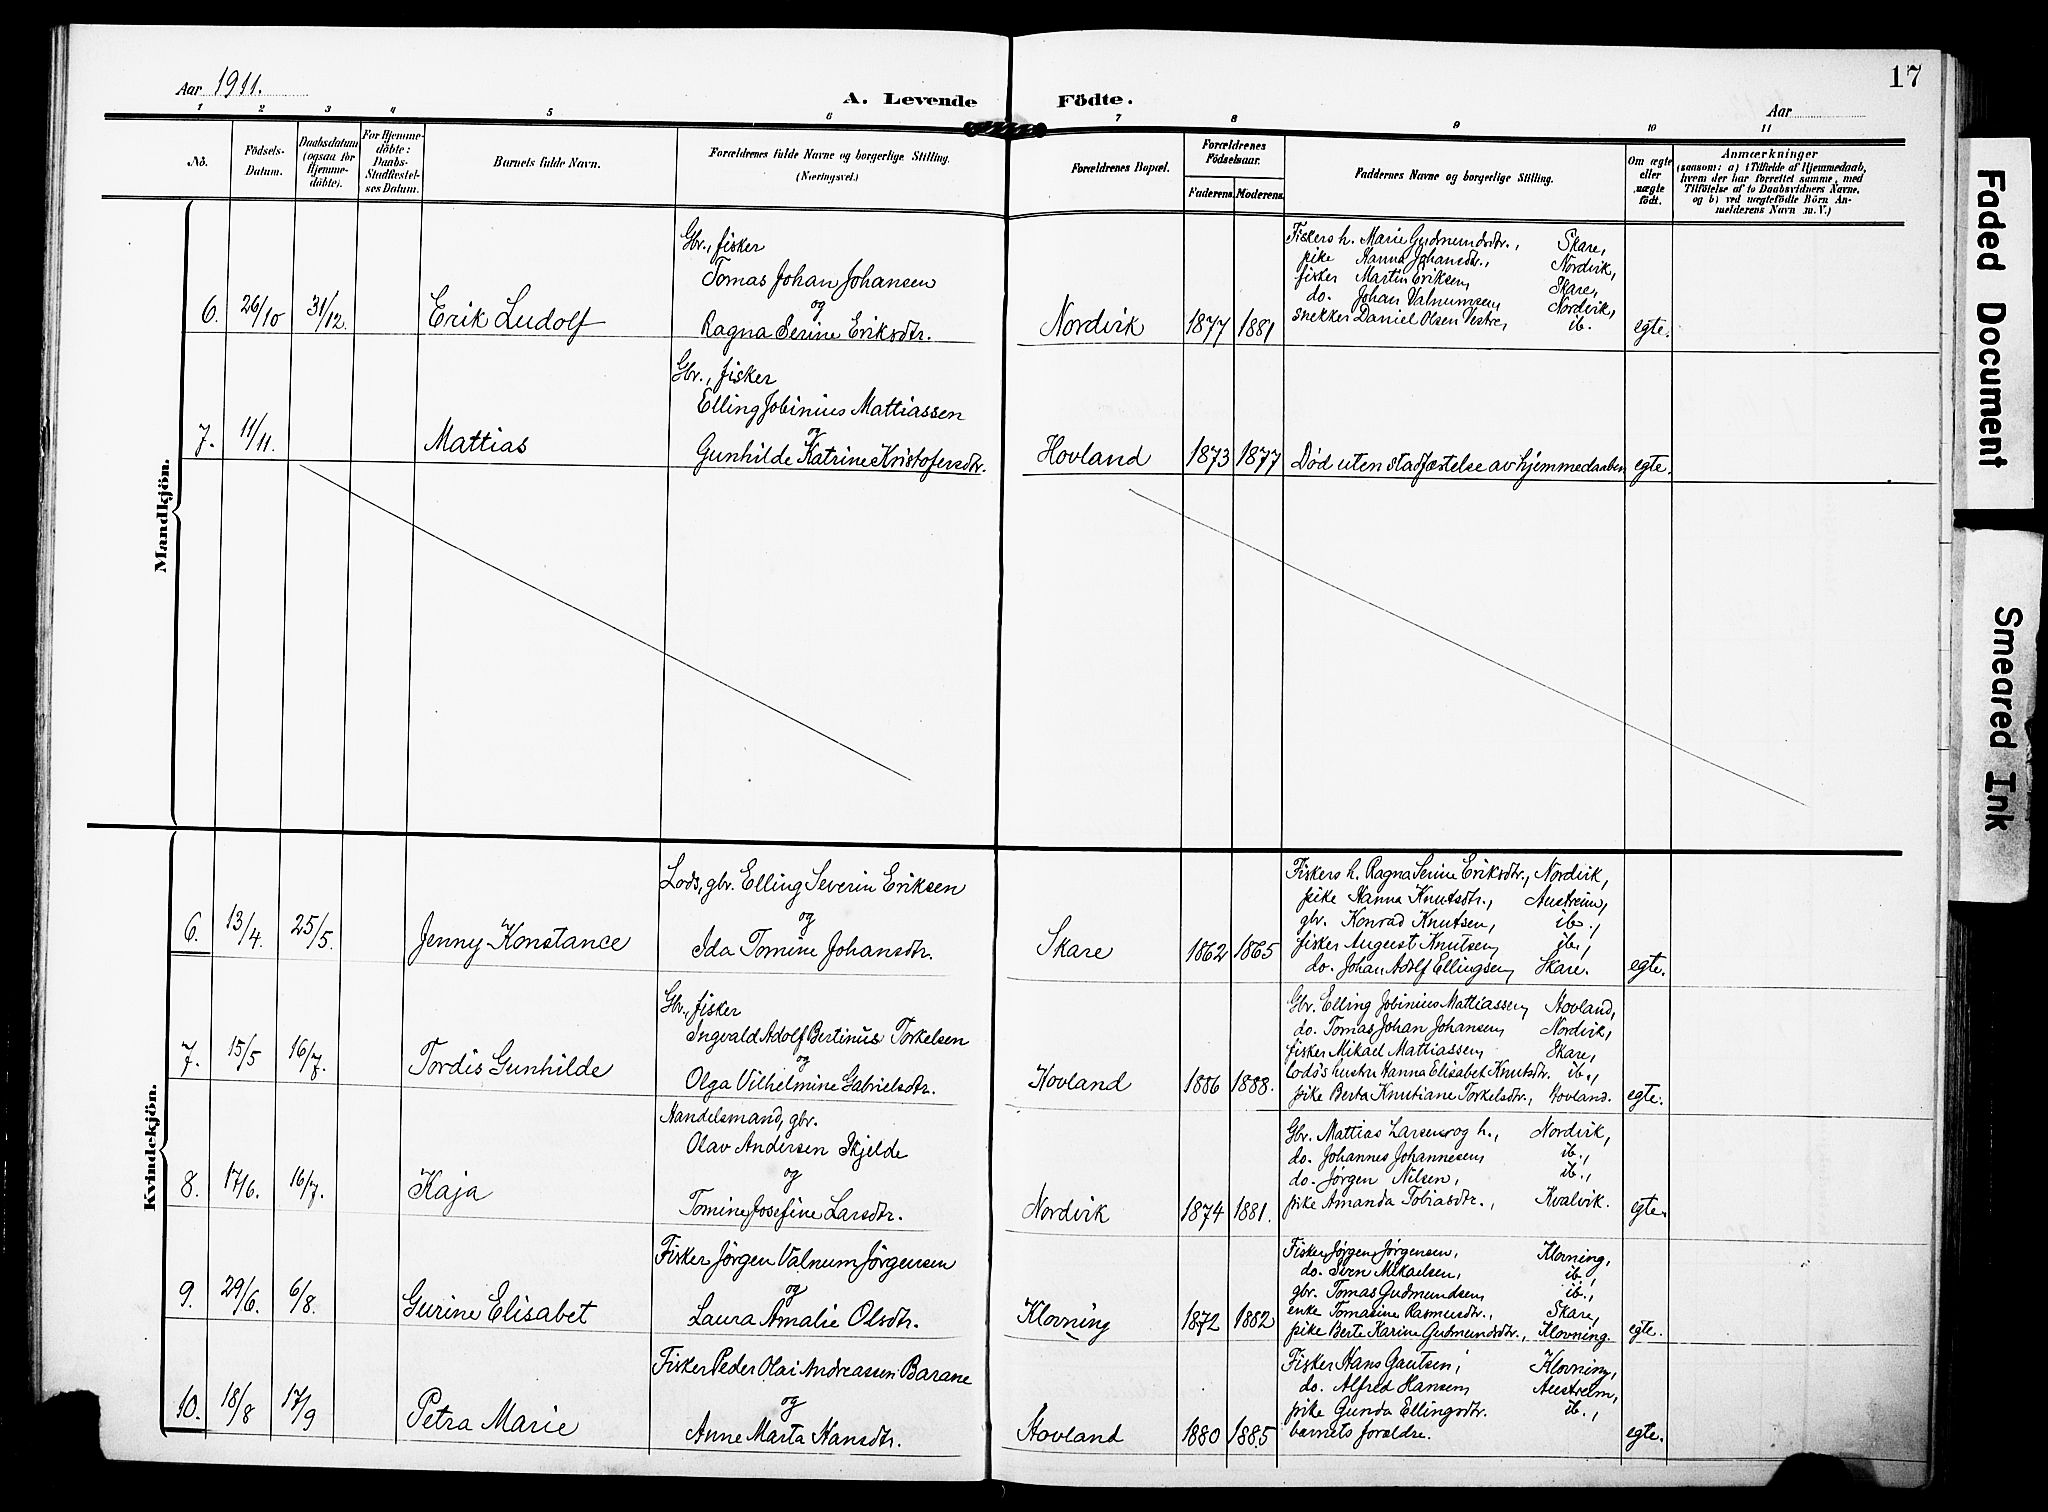 17
Aar 1911.
A. Levende Födte.
Aar
1 2 3 4 5 6 7 8 9 10 11
No.
Födsels-
Datum.
Daabsdatum
(ogsaa for
Hjemme-
döbte).
For Hjemme-
döbte:
Daabs-
Stadfæstel-
ses Datum.
Barnets fulde Navn.
Forældrenes fulde Navne og borgerlige Stilling.
(Næringsvei.)
Forældrenes Bopæl.
Forældrenes
Födselsaar.
Faderens. Moderens.
Faddernes Navne og borgerlige Stilling.
Om ægte
eller
uægte
födt.
Anmærkninger
(saasom: a) i Tilfælde af Hjemmedaab,
hvem der har forrettet samme, med
Tilföielse af to Daabsvidners Navne,
og b) ved uægtefödte Börn An-
melderens Navn m. V.)
Mandkjön.
6. 26/10 31/12. Erik Ludolf
Gbr., fisker
Tomas Johan Johansen
og
Ragna Serine Eriksdtr.
Nordvik 1877 1881
Fiskers h. Marie Gudmundsdtr., Skare,
pike Hanna Johansdtr., Nordvik,
fisker Martin Eriksen, Skare,
do. Johan Valnumsen, Nordvik,
snekker Daniel Olsen Vestre, ib.
egte.
7. 11/11. Mattias
Gbr., fisker
Elling Jobinius Mattiassen
og
Gunhilde Katrine Kristofersdtr.
Hovland 1873 1877 Död uten stadfæstelse av hjemmedaaben egte.
Kvindekjön.
6. 13/4. 25/5. Jenny Konstance
Lods, gbr. Elling Severin Eriksen
og
Ida Tomine Johansdtr.
Skare 1862 1865
Fiskers h. Ragna Serine Eriksdtr., Nordvik,
pike Hanna Knutsdtr., Austreim,
gbr. Konrad Knutsen, ib.,
fisker August Knutsen, ib.,
do. Johan Adolf Ellingsen, Skare.
egte.
7. 15/5 16/7. Tordis Gunhilde
Gbr., fisker
Ingvald Adolf Bertinus Torkelsen
og
Olga Vilhelmine Gabrielsdtr.
Hovland 1886 1888.
Gbr. Elling Jobinius Mattiassen, Hovland,
do. Tomas Johan Johansen, Nordvik,
fisker Mikael Mattiassen, Skare,
lods hustru Hanna Elisabet Knutsdtr. ib.,
pike Berta Knutiane Torkelsdtr., Hovland.
egte.
8. 17/6. 16/7. Kaja
Handelsmand, gbr.
Olav Andersen Skjelde
og
Tomine Josefine Larsdtr.
Nordvik 1874 1881.
Gbr. Mattias Larsen og h., Nordvik,
do. Johannes Johannesen, ib.,
do. Jørgen Nilsen, ib.,
pike Amanda Tobiasdtr., Kvalvik.
egte.
9. 29/6. 6/8. Gurine Elisabet
Fisker Jørgen Valnum Jørgensen
og
Laura Amalie Olsdtr.
Klovning 1872 1882
Fisker Jørgen Jørgensen, Klovning,
do. Sven Mikaelsen, ib.,
gbr. Tomas Gudmundsen, ib.,
enke Tomasine Rasmusdtr., Skare,
pike Berte Karine Gudmundsdtr., Klovning.
egte.
10. 18/8 17/9 Petra Marie
Fisker Peder Olai Andreassen Barane
og
Anne Marta Hansdtr.
Hovland 1880 1885
Fisker Hans Gautsen, Klovning,
do. Alfred Hansen, Austreim,
pike Gunda Ellingsdtr. ib.,
barnets forældre.
egte.
Faded Document
Smeared Ink